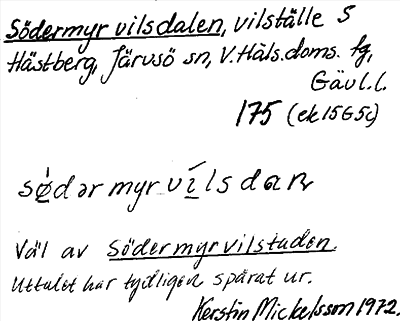 Södermyrvilsdalen, vilställe S
Hästberg, Järvsö sn, V. Häls. doms. fg,
Gävl.l.
175 (ek 15G5c)
sø̀dərmyrví̱lsdaɴ
Väl av Södermyrvilstaden.
Uttalet har tydligen spårat ur.
Kerstin Mickelsson 1972.